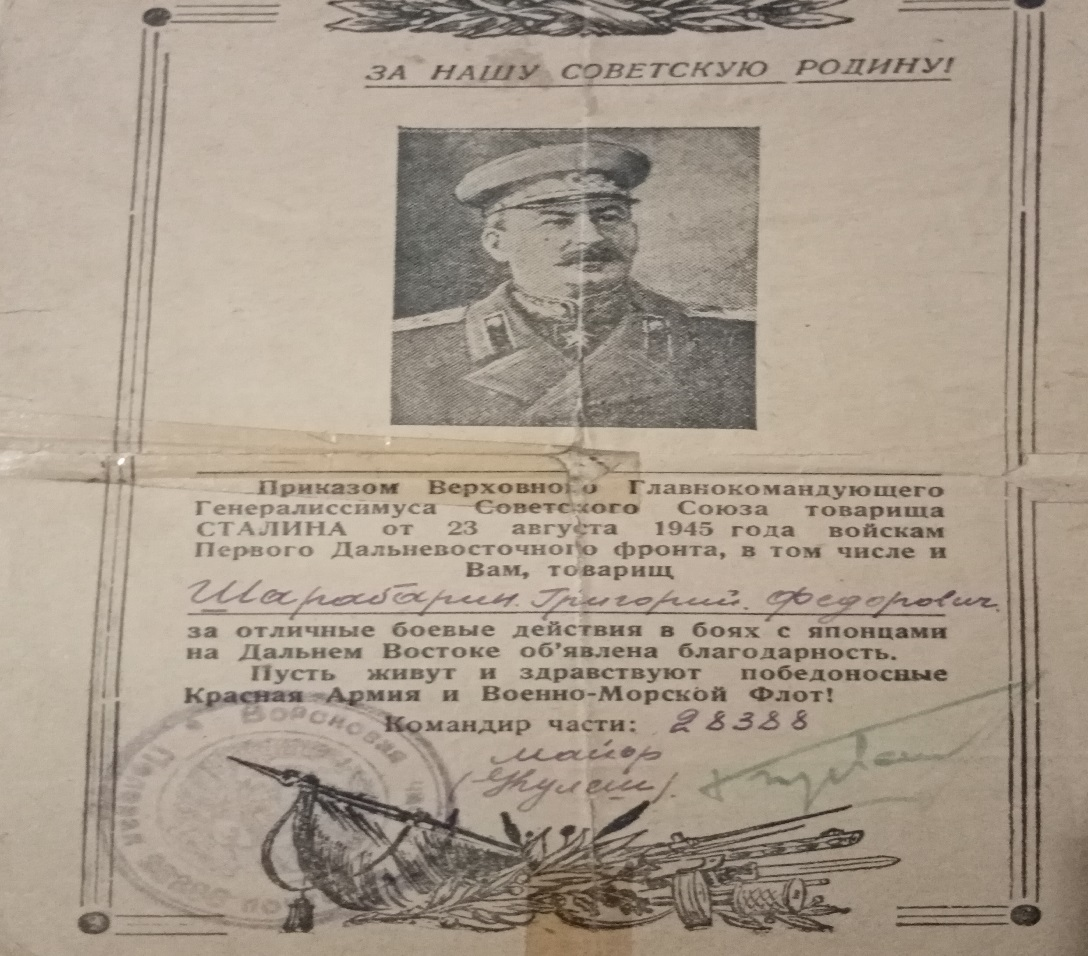 ЗА НАШУ СОВЕТСКУЮ РОДИНУ!
Приказом Верховного Главнокомандующего
Генералиссимуса Советского Союза товарища
СТАЛИНА от 23 августа 1945 года войскам
Первого Дальневосточного фронта, в том числе и
Вам, товарищ
Шарабарин Григорий Федорович
за отличные боевые действия в боях с японцами
на Дальнем Востоке об'явлена благодарность.
Пусть живут и здравствуют победоносные
Красная Армия и Военно-Морской Флот!
Командир части: 28388
майор
Войсковая